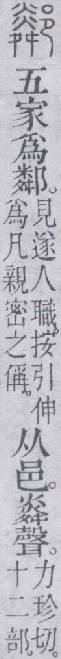 鄰 五家爲鄰。見遂人職。按引伸爲凡親密之偁。从邑。㷠聲。力珍切。十二部。